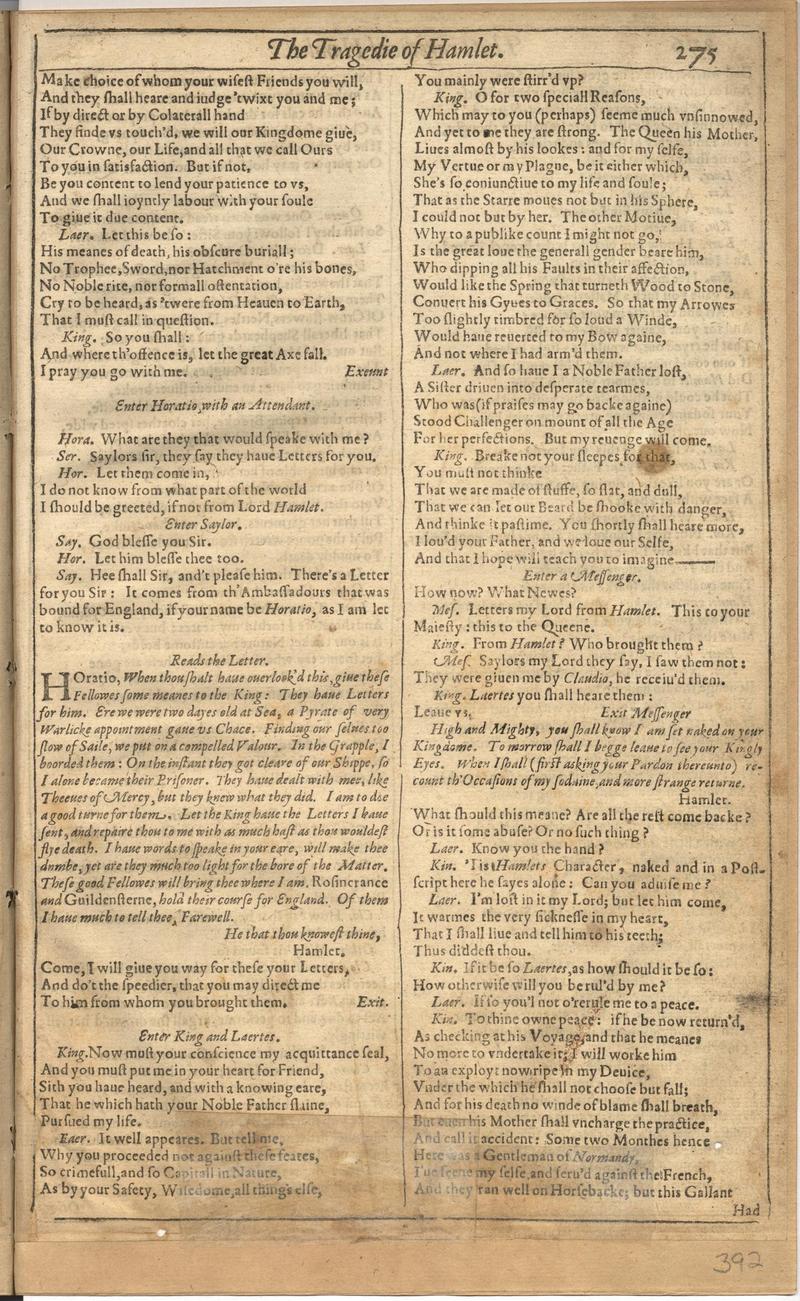 The Tragedie of Hamlet. 275
Make choice of whom your wiſeſt Friends you will,
And they ſhall heare and iudge 'twixt you and me;
If by direct or by Colaterall hand
They finde vs touch'd, we will our Kingdome giue,
Our Crowne, our Life, and all that we call Ours
To you in ſatisfaction. But if not,
Be you content to lend your patience to vs,
And we ſhall ioyntly labour with your ſoule
To giue it due content.
Laer. Let this be ſo:
His meanes of death, his obſcure buriall;
No Trophee, Sword, nor Hatchment o're his bones,
No Noble rite, nor formall oſtentation,
Cry to be heard, as 'twere from Heauen to Earth,
That I muſt call in queſtion.
King. So you ſhall:
And where th'offence is, let the great Axe fall.
I pray you go with me. Exeunt
Enter Horatio, with an Attendant.
Hora. What are they that would ſpeake with me?
Ser. Saylors ſir, they ſay they haue Letters for you.
Hor. Let them come in,
I do not know from what part of the world
I ſhould be greeted, if not from Lord Hamlet.
Enter Saylor.
Say. God bleſſe you Sir.
Hor. Let him bleſſe thee too.
Say. Hee ſhall Sir, and't pleaſe him. There's a Letter
for you Sir: It comes from th'Ambaſſadours that was
bound for England, if your name be Horatio, as I am let
to know it is.
Reads the Letter.
HOratio, When thou ſhalt haue ouerlook'd this, giue theſe
Fellowes ſome meanes to the King: They haue Letters
for him. Ere we were two dayes old at Sea, a Pyrate of very
Warlicke appointment gaue vs Chace. Finding our ſelues too
ſlow of Saile, we put on a compelled Valour. In the Grapple, I
boorded them: On the inſtant they got cleare of our Shippe, ſo
I alone became their Priſoner. They haue dealt with mee, like
Theeues of Mercy, but they knew what they did. I am to doe
a good turne for them. Let the King haue the Letters I haue
ſent, and repaire thou to me with as much haſt as thou wouldeſt
flye death. I haue words to ſpeake in your eare, will make thee
dumbe, yet are they much too light for the bore of the Matter.
Theſe good Fellowes will bring thee where I am. Roſincrance
and Guildenſterne, hold their courſe for England. Of them
I haue much to tell thee, Farewell.
He that thou knoweſt thine,
Hamlet.
Come, I will giue you way for theſe your Letters,
And do't the ſpeedier, that you may direct me
To him from whom you brought them. Exit.
Enter King and Laertes.
King. Now muſt your conſcience my acquittance ſeal,
And you muſt put me in your heart for Friend,
Sith you haue heard, and with a knowing eare,
That he which hath your Noble Father ſlaine,
Purſued my life.
Laer. It well appeares. But tell me,
Why you proceeded not againſt theſe feates,
So crimefull, and ſo Capitall in Nature,
As by your Safety, Wiſedome, all things elſe,
You mainly were ſtirr'd vp?
King. O for two ſpeciall Reaſons,
Which may to you (perhaps) ſeeme much vnſinnowed,
And yet to me they are ſtrong. The Queen his Mother,
Liues almoſt by his lookes: and for my ſelfe,
My Vertue or my Plague, be it either which,
She's ſo coniunctiue to my life and ſoule;
That as the Starre moues not but in his Sphere,
I could not but by her. The other Motiue,
Why to a publike count I might not go,
Is the great loue the generall gender beare him,
Who dipping all his Faults in their affection,
Would like the Spring that turneth Wood to Stone,
Conuert his Gyues to Graces. So that my Arrowes
Too ſlightly timbred for ſo loud a Winde,
Would haue reuerted to my Bow againe,
And not where I had arm'd them.
Laer. And ſo haue I a Noble Father loſt,
A Siſter driuen into deſperate tearmes,
Who was (if praiſes may go backe againe)
Stood Challenger on mount of all the Age
For her perfections. But my reuenge will come.
King. Breake not your ſleepes for that,
You muſt not thinke
That we are made of ſtuffe, ſo flat, and dull,
That we can let our Beard be ſhooke with danger,
And thinke it paſtime. You ſhortly ſhall heare more,
I lou'd your Father, and we loue our Selfe,
And that I hope will teach you to imagine——
Enter a Meſſenger.
How now? What Newes?
Meſ. Letters my Lord from Hamlet. This to your
Maieſty: this to the Queene.
King. From Hamlet? Who brought them?
Meſ. Saylors my Lord they ſay, I ſaw them not:
They were giuen me by Claudio, he receiu'd them.
King. Laertes you ſhall heare them:
Leaue vs. Exit Meſſenger
High and Mighty, you ſhall know I am ſet naked on your
Kingdome. To morrow ſhall I begge leaue to ſee your Kingly
Eyes. When I ſhall (firſt asking your Pardon thereunto) re-
count th'Occaſions of my ſodaine, and more ſtrange returne.
Hamlet.
What ſhould this meane? Are all the reſt come backe?
Or is it ſome abuſe? Or no ſuch thing?
Laer. Know you the hand?
Kin. 'Tis Hamlets Character, naked and in a Poſt-
ſcript here he ſayes alone: Can you aduiſe me?
Laer. I'm loſt in it my Lord; but let him come,
It warmes the very ſickneſſe in my heart,
That I ſhall liue and tell him to his teeth;
Thus diddeſt thou.
Kin. If it be ſo Laertes, as how ſhould it be ſo:
How otherwiſe will you be rul'd by me?
Laer. If ſo you'l not o'rerule me to a peace.
Kin. To thine owne peace: if he be now return'd,
As checking at his Voyage, and that he meanes
No more to vndertake it; I will worke him
To an exployt now ripe in my Deuice,
Vnder the which he ſhall not chooſe but fall;
And for his death no winde of blame ſhall breath,
But euen his Mother ſhall vncharge the practice,
And call it accident: Some two Monthes hence
Here was a Gentleman of Normandy,
I'ue ſeene my ſelfe, and ſeru'd againſt the French,
And they ran well on Horſebacke; but this Gallant
Had
392